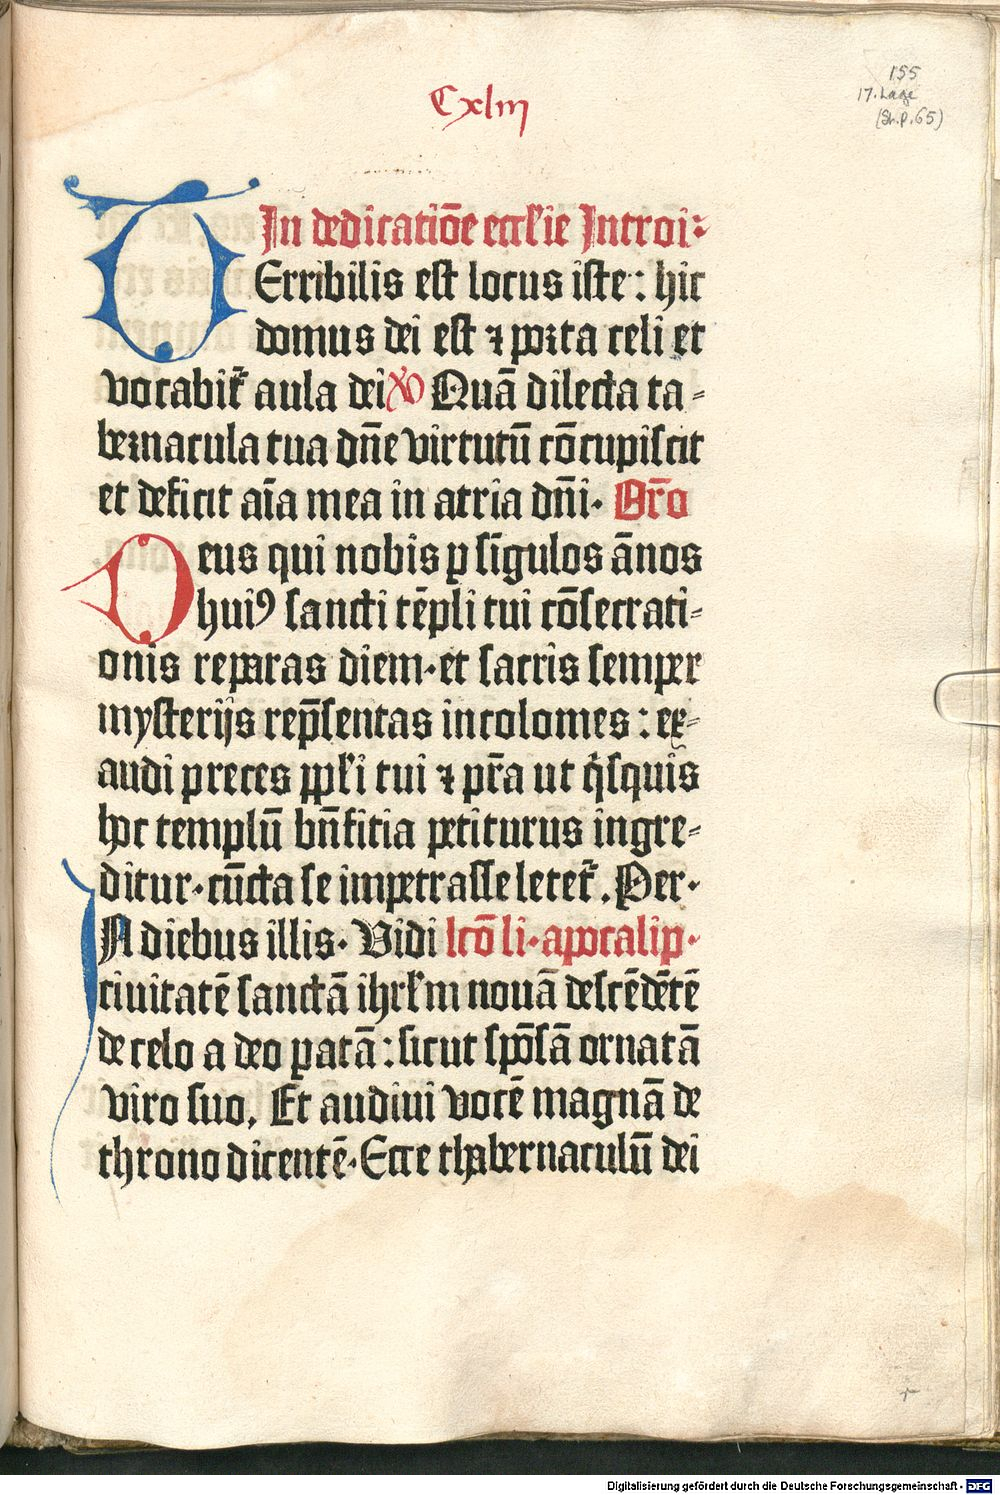 155
17. Lage
(St. p. 65)
Cxliii
In dedicatiōe eccl'ie Introi:
TErribilis est locus iste : hic
domus dei est ⁊ porta celi et
vocabit᷑ aula dei Quā dilecta ta-
bernacula tua dn̄e virtutū cōcupiscit
et deficit aīa mea in atria dn̄i. Or̄o
Deus qui nobis ꝑ sīgulos ānos
huiꝰ sancti tēpli tui cōsecrati-
onis reparas diem. et sacris semper
mysterijs rep̄sentas incolomes : ex-
audi preces ppl'i tui ⁊ pr̄a ut q̄squis
hoc templū bn̄ficia petiturus ingre-
ditur. cūcta se impetrasse letet᷑. Per.
IN diebus illis. Vidi lcō li. apocalip.
ciuitatē sanctā ihrl'm nouā descēdētē
de celo a deo ꝑatā : sicut spōsā ornatā
viro suo. Et audiui vocē magnā de
throno dicentē. Ecce thabernaculū dei
Digitalisierung gefördert durch die Deutsche Forschungsgemeinschaft - DFG